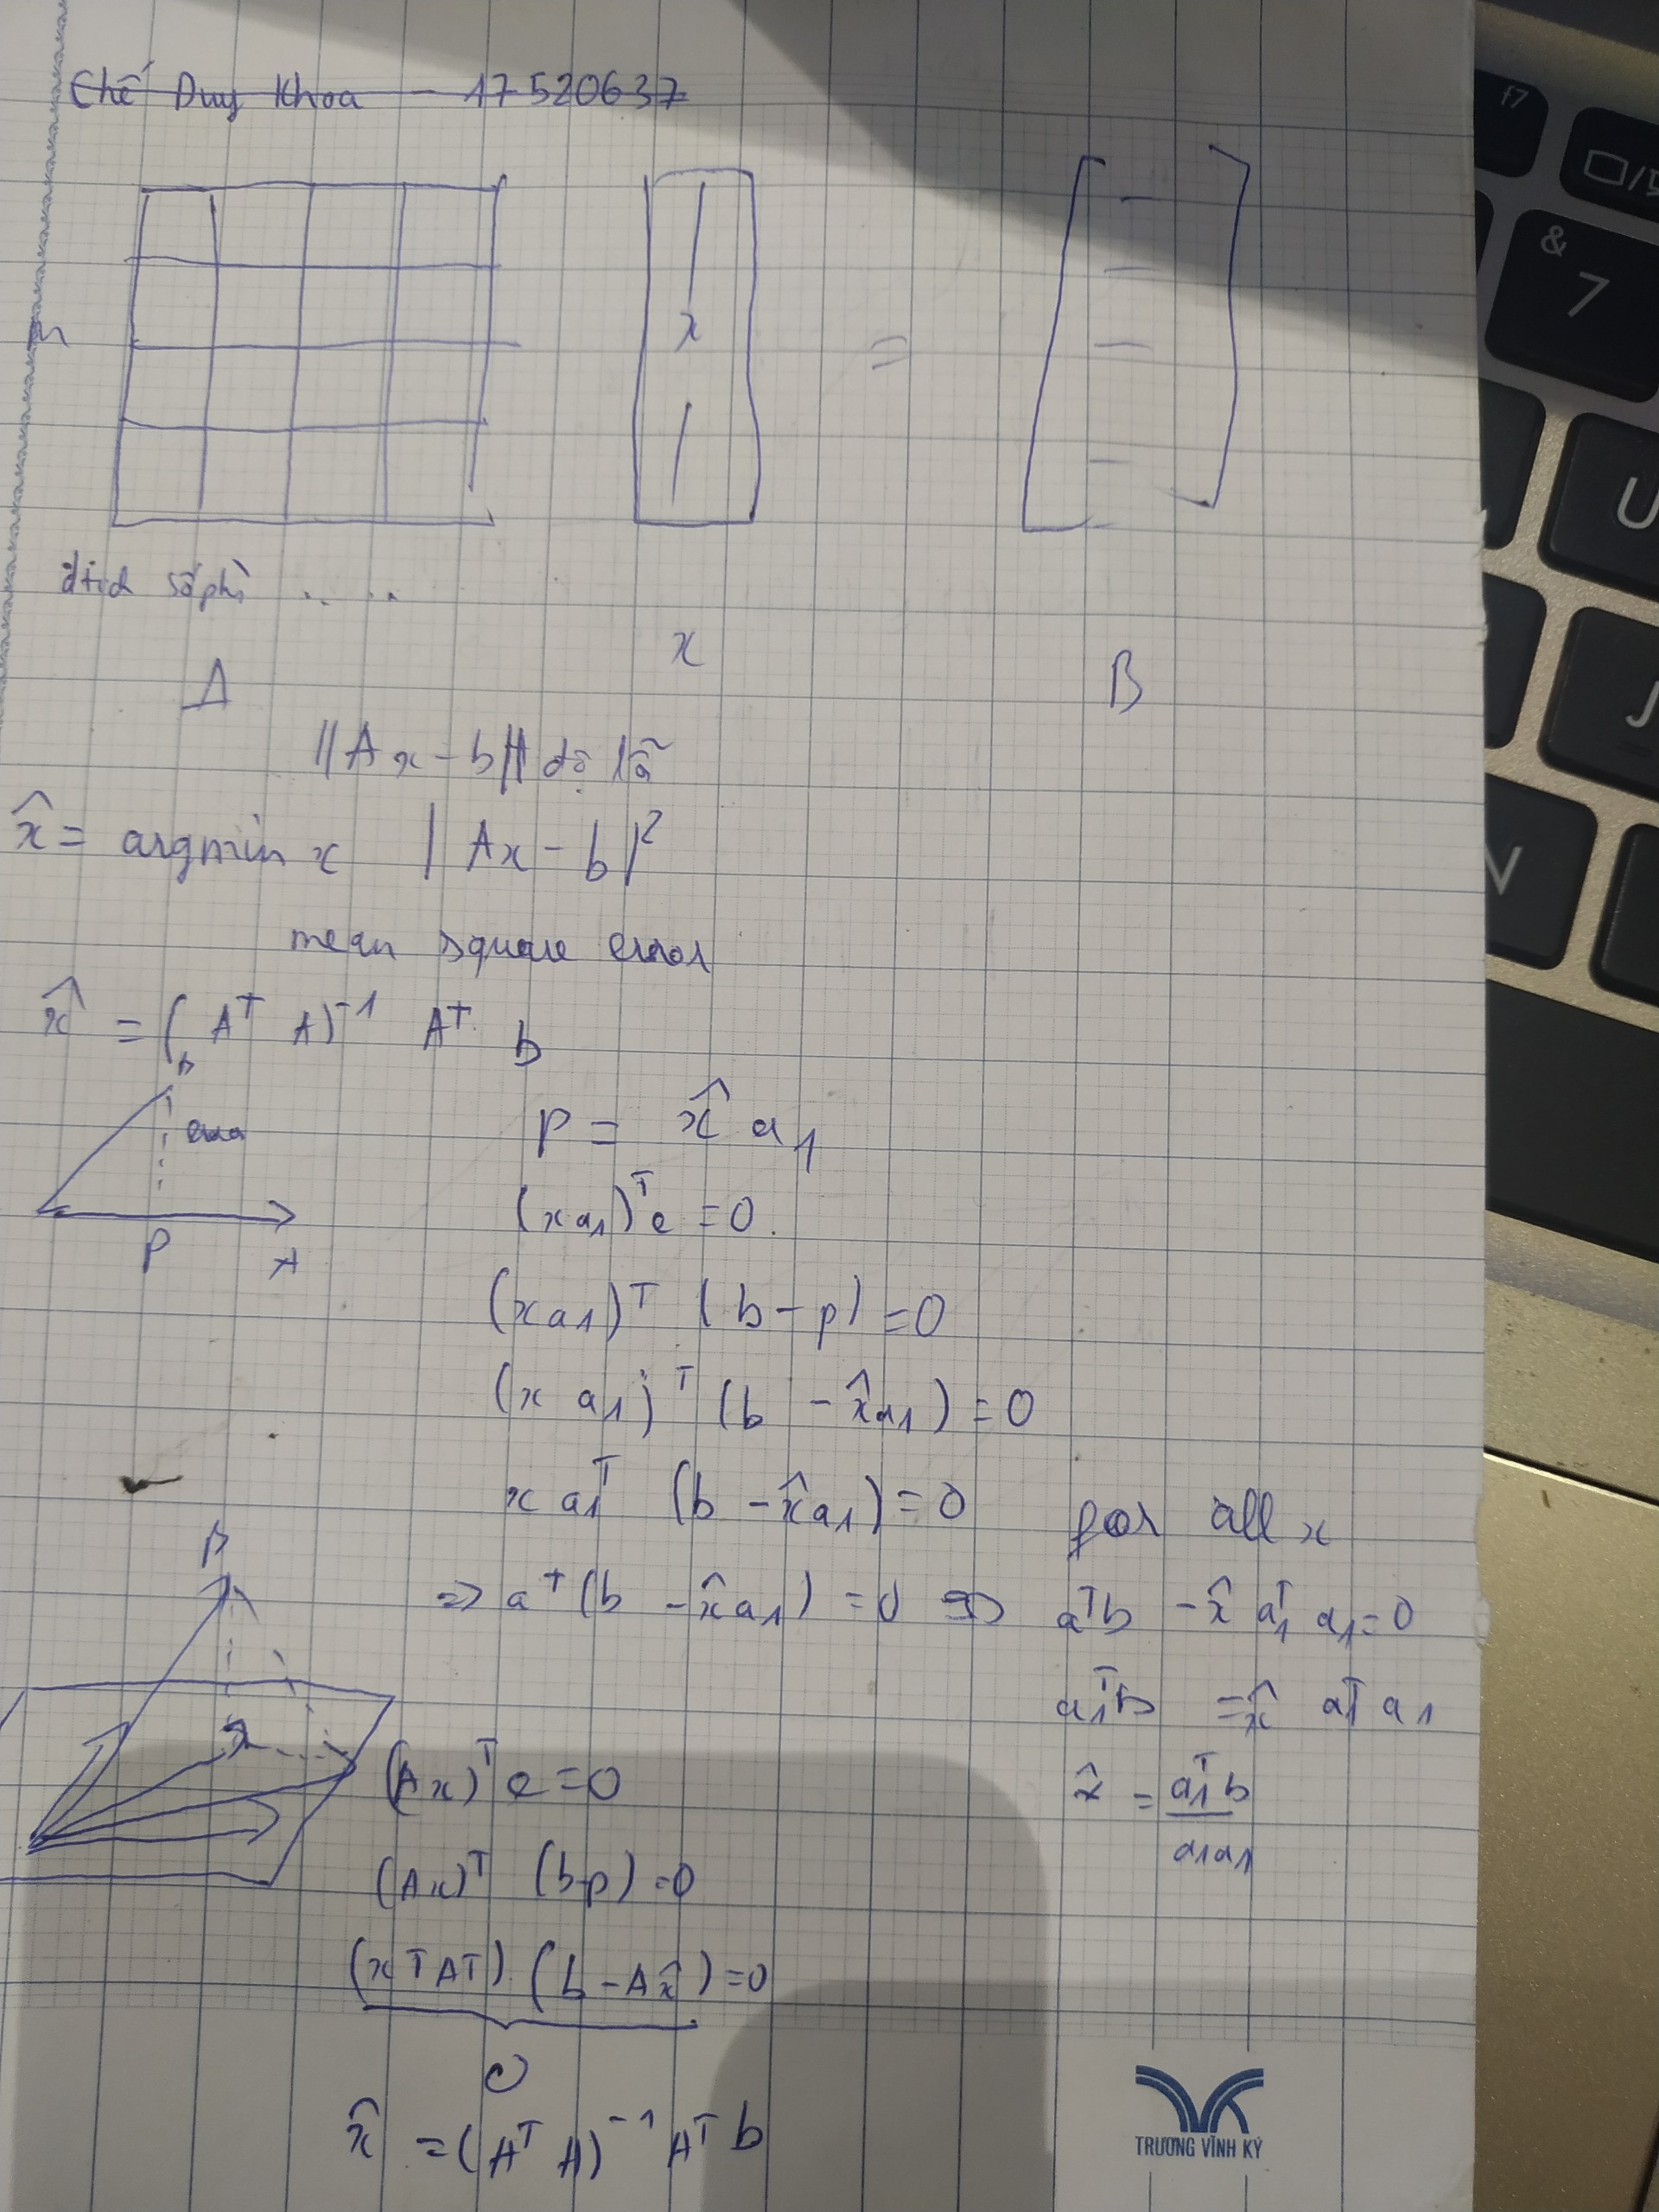 Chế Duy Khoa - 17520637
x
=
dtich số phò .. ..
A
x
B
||Ax - b||
x̂ = argmin x |Ax - b|²
mean square error
x̂ = (Aᵀ A)⁻¹ Aᵀ b
b
P
A
p = x̂ a₁
(x a₁)ᵀ e = 0.
(x a₁)ᵀ (b - p) = 0
(x a₁)ᵀ (b - x̂ a₁) = 0
x a₁ᵀ (b - x̂ a₁) = 0 for all x
=> aᵀ (b - x̂ a₁) = 0 <=> aᵀb - x̂ a₁ᵀ a₁ = 0
a₁ᵀb = x̂ a₁ᵀ a₁
x̂ = a₁ᵀb / a₁a₁
B
(Ax)ᵀ e = 0
(Ax)ᵀ (b-p) = 0
(xᵀAᵀ) (b - Ax̂) = 0
0
x̂ = (Aᵀ A)⁻¹ Aᵀ b
TRƯƠNG VĨNH KÝ
f7
&
7
U
J
N